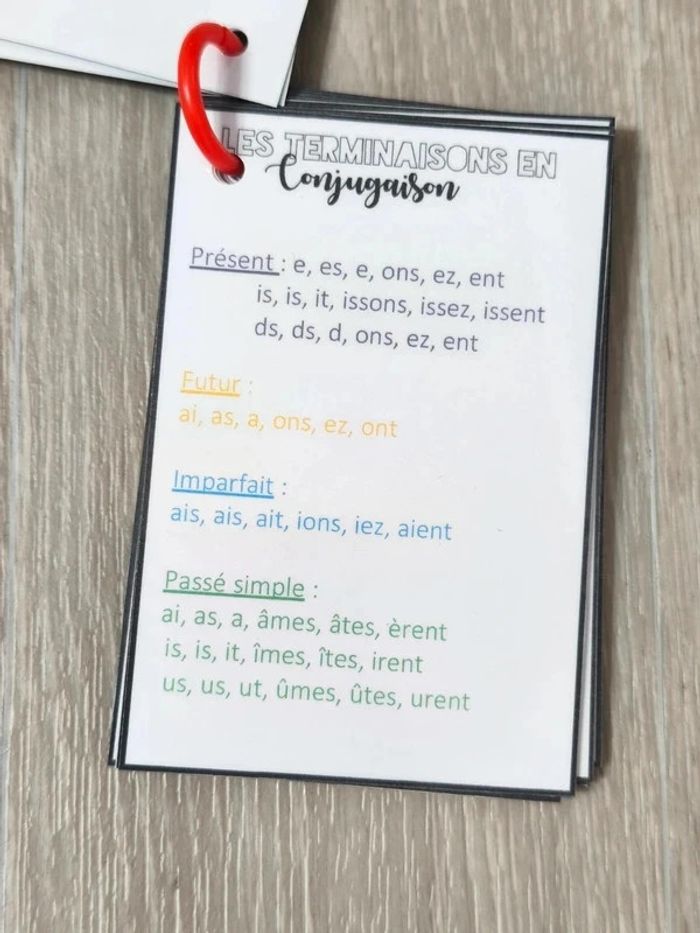 LES TERMINAISONS EN
Conjugaison
Présent : e, es, e, ons, ez, ent
is, is, it, issons, issez, issent
ds, ds, d, ons, ez, ent
Futur :
ai, as, a, ons, ez, ont
Imparfait :
ais, ais, ait, ions, iez, aient
Passé simple :
ai, as, a, âmes, âtes, èrent
is, is, it, îmes, îtes, irent
us, us, ut, ûmes, ûtes, urent